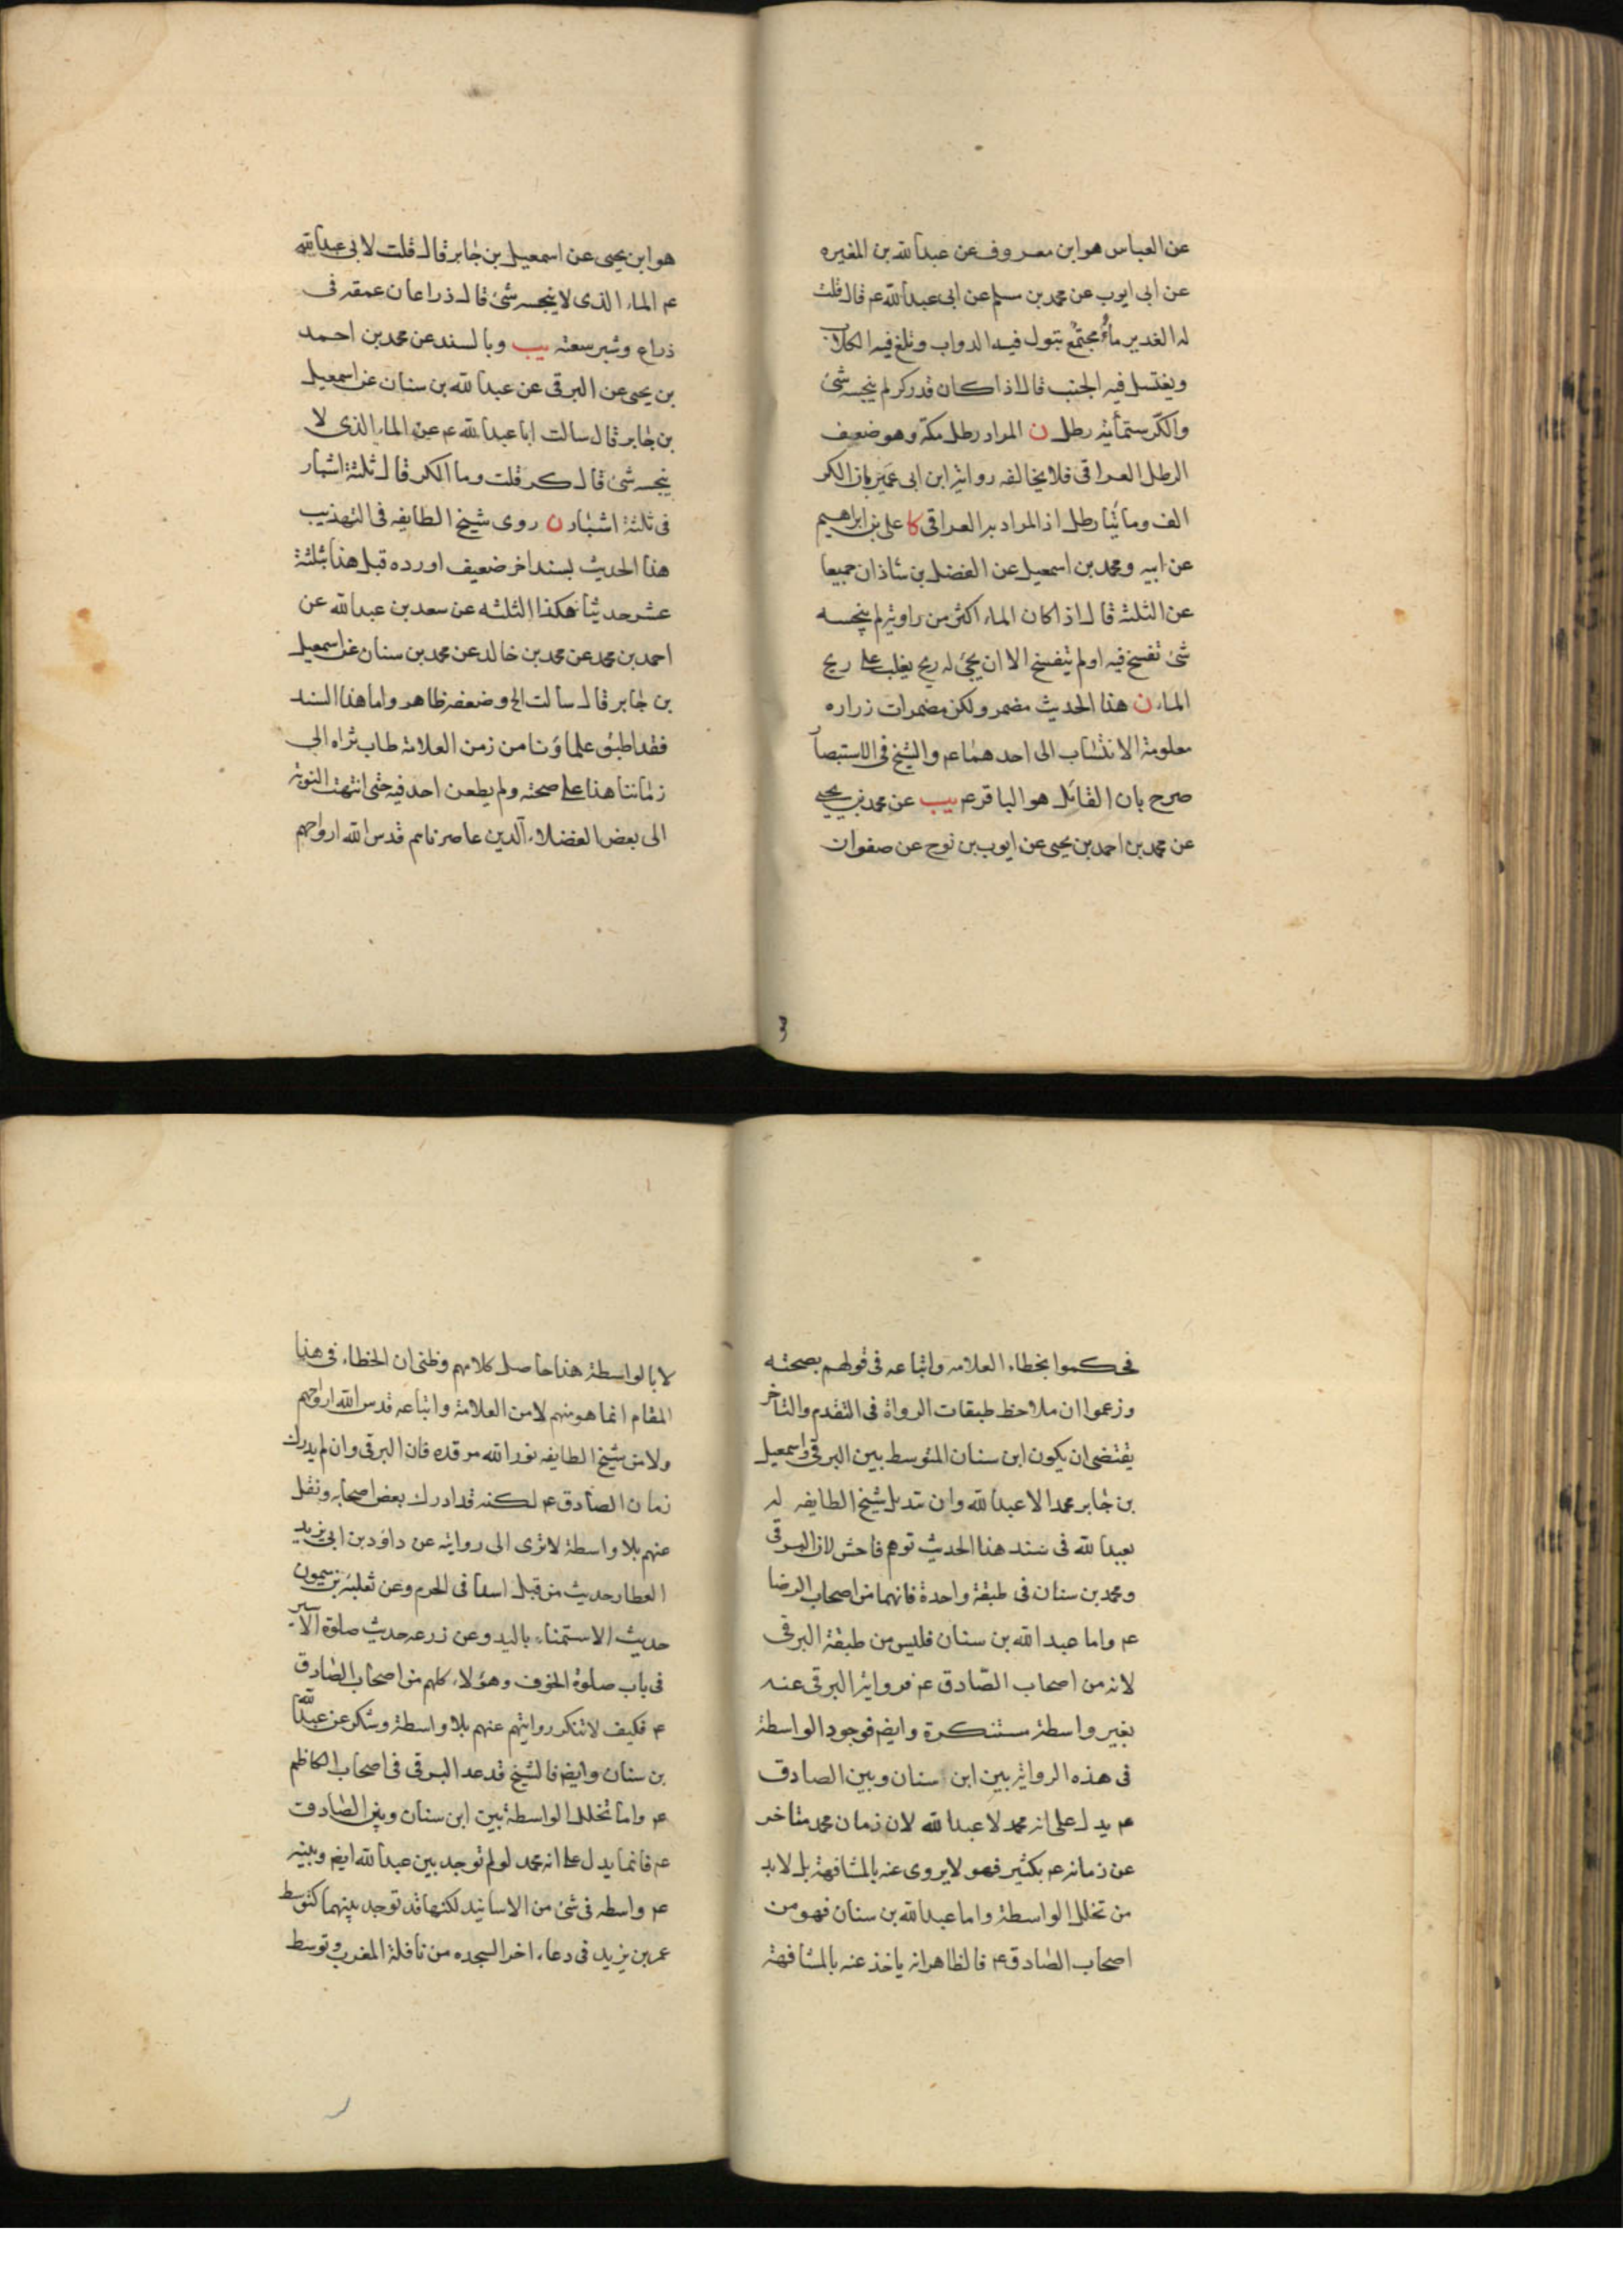 عن العباس هو ابن معروف عن عبد الله بن المغيره
عن ابى ايوب عن محمد بن مسلم عن ابى عبد الله ع قال قلت
له الغدير ماءٌ مجتمعٌ تبول فيه الدواب وتلغ فيه الكلاب
ويغتسل فيه الجنب قال اذا كان قدر كر لم ينجسه شئ
والكرّ ستمأية رطل ن المراد رطل مكة وهو ضعيف
الرطل العراقى فلا يخالفه رواية ابن ابى عمَير بان الكر
الف ومائتا رطل اذ المراد به العراقى كا على بن ابراهيم
عن ابيه ومحمد بن اسمعيل عن الفضل بن شاذان جميعا
عن الثلثة قال اذا كان الماء اكثر من راوية لم ينجسه
شئ تفسخ فيه او لم يتفسخ الا ان يجئ له ريح يغلب على ريح
الماء ن هذا الحديث مضمر ولكن مضمرات زراره
معلومة الانتساب الى احدهما ع والشيخ فى الاستبصار
صرح بان القائل هو الباقر ع يب عن محمد بن يحيى
عن محمد بن احمد بن يحيى عن ايوب بن نوح عن صفوان
هو ابن يحيى عن اسمعيل بن جابر قال قلت لابى عبد الله
ع الماء الذى لا ينجسه شئ قال ذراعان عمقه فى
ذراع وشبر سعته يب وبالسند عن محمد بن احمد
بن يحيى عن البرقى عن عبد الله بن سنان عن اسمعيل
بن جابر قال سالت ابا عبد الله ع عن الماء الذى لا
ينجسه شئ قال كر قلت وما الكر قال ثلثة اشبار
فى ثلثة اشبار ن روى شيخ الطايفه فى التهذيب
هذا الحديث بسند اخر ضعيف اورده قبل هذا بثلثة
عشر حديثا هكذا الثلثه عن سعد بن عبد الله عن
احمد بن محمد عن محمد بن خالد عن محمد بن سنان عن اسمعيل
بن جابر قال سالت الخ وضعفه ظاهر واما هذا السند
فقد اطبق علماؤنا من زمن العلامة طاب ثراه الى
زماننا هذا على صحته ولم يطعن احد فيه حتى انتهت النوبة
الى بعض الفضلاء الذين عاصرناهم قدس الله ارواحهم
فحكموا بخطاء العلامه واتباعه فى قولهم بصحته
وزعموا ان ملاحظ طبقات الرواة فى التقدم والتاخر
يقتضى ان يكون ابن سنان المتوسط بين البرقى واسمعيل
بن جابر محمدا لا عبد الله وان تبديل شيخ الطايفه له
بعبد الله فى سند هذا الحديث توهم فاحش لان البرقى
ومحمد بن سنان فى طبقة واحدة فانهما من اصحاب الرضا
ع واما عبد الله بن سنان فليس من طبقة البرقى
لانه من اصحاب الصّادق ع فرواية البرقى عنه
بغير واسطة مستنكرة وايضا فوجود الواسطة
فى هذه الرواية بين ابن سنان وبين الصادق
ع يدل على انه محمد لا عبد الله لان زمان محمد متاخر
عن زمانه ع بكثير فهو لا يروى عنه بالمشافهة بل لا بد
من تخلل الواسطة واما عبد الله بن سنان فهو من
اصحاب الصادق ع فالظاهر انه ياخذ عنه بالمشافهة
لا بالواسطة هذا حاصل كلامهم وظنى ان الخطاء فى هذا
المقام انما هو منهم لا من العلامة واتباعه قدس الله ارواحهم
ولا من شيخ الطايفه نور الله مرقده فان البرقى وان لم يدرك
زمان الصادق ع لكنه قد ادرك بعض اصحابه ونقل
عنهم بلا واسطة لا ترى الى روايته عن داود بن ابى يزيد
العطار حديث من قتل اسدا فى الحرم وعن ثعلبة بن ميمون
حديث الاستمناء باليد وعن زرعه حديث صلوة الاسير
فى باب صلوة الخوف وهؤلاء كلهم من اصحاب الصادق
ع فكيف لا تنكر روايتهم عنهم بلا واسطة وتنكر عن عبد الله
بن سنان وايضا فالشيخ قد عد البرقى فى اصحاب الكاظم
ع واما تخلل الواسطة بين ابن سنان وبين الصادق
ع فانما يدل على انه محمد لو لم توجد بين عبد الله ايضا وبينه
ع واسطه فى شئ من الاسانيد لكنها قد توجد بينهما كتوسط
عمر بن يزيد فى دعاء اخر السجده من نافلة المغرب وتوسط